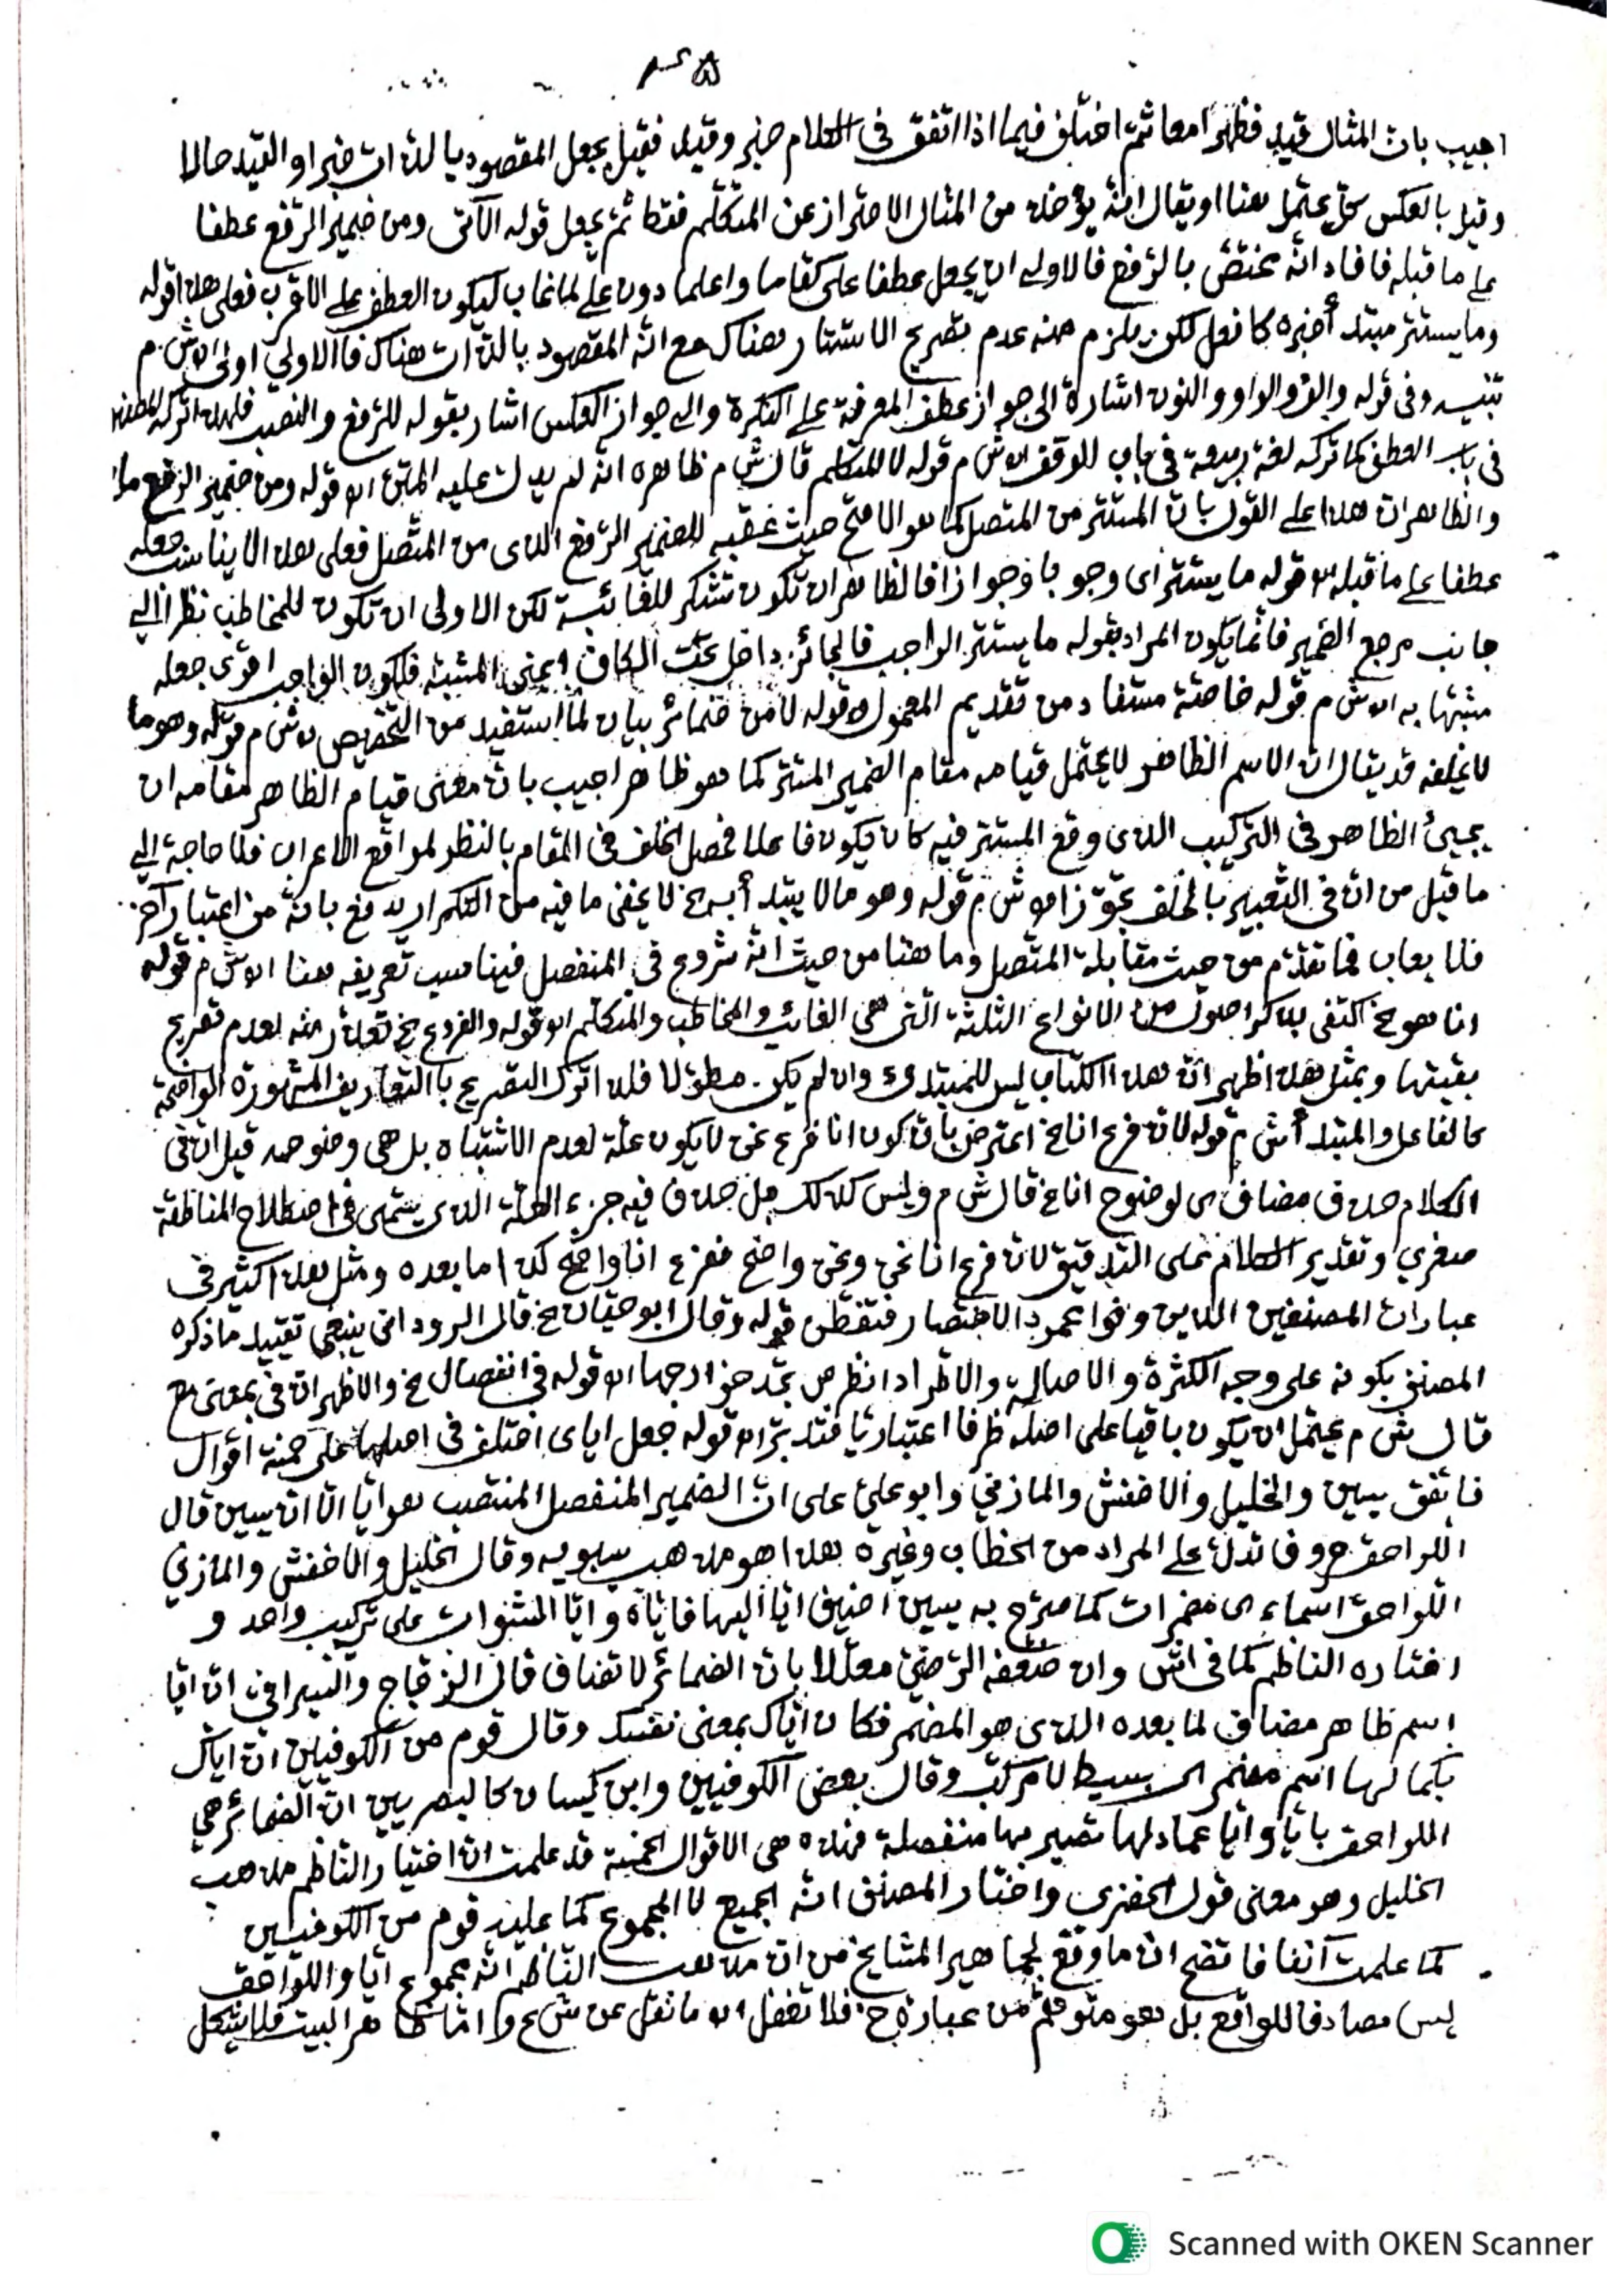 اجيب بان المثال قيد فظهرا معا ثم اختلف فيما اذا اتفق فى الكلام خبر وقيد فقيل يجعل المقصود بالذات خبرا والقيد حالا
وقيل بالعكس كل محتمل هنا او يقال انه يؤخذ من المثال الاحتراز عن المتكلم فقط ثم يجعل قوله الآتى ومن ضمير الرفع عطفا
على ما قبله فافاد انه مختص بالرفع فالاولى ان يجعل عطفا على كقاما واعلما دون على لما غاب ليكون العطف على الاقرب فعلى هذا قوله
وما يستتر مبتدأ خبره كافعل لكن يلزم منه عدم تصريح الاستتار هناك مع انه المقصود بالذات هناك فالاولى اولى اه ش م
تنبيه وفى قوله والف والواو والنون اشارة الى جواز عطف المعرفة على النكرة والى جواز العكس اشار بقوله للرفع والنصب فلهذا تركه
فى باب العطف كما ترك لغة ربيعة فى باب الوقف اه ش م قوله لا للمتكلم قال ش م ظاهره انه لم يدل عليه المتن اه قوله ومن ضمير الرفع
والظاهر ان هذا على القول بان المستتر من المتصل كما هو الاصح حيث عقبه للضمير الرفع الذى من المتصل فعلى هذا لا يناسب جعله
عطفا على ما قبله اه قوله ما يستتر اى وجوبا وجوازا فالظاهر ان تكون تشكر للغائبة لكن الاولى ان تكون للمخاطب نظرا الى
جانب مرجع الضمير فانما يكون المراد بقوله ما يستتر الواجب فالجائز داخل تحت الكاف بمعنى المشبه فلكون الواجب اقوى جعله
مشبها به اه ش م قوله خاصة مستفاد من تقديم المعمول اه قوله لا من ضمائر بيان لما استفيد من التخصيص اه ش م قوله وهو ما
لا يخلفه قد يقال ان الاسم الظاهر لا يحتمل قيامه مقام الضمير المستتر كما هو ظاهر اجيب بان معنى قيام الظاهر مقامه ان
يجيئ الظاهر فى التركيب الذى وقع المستتر فيه كان يكون فاعلا فحصل الخلف فى المقام بالنظر لمواقع الاعراب فلا حاجة الى
ما قيل من ان فى التعبير بالخلف تجوزا اه ش م قوله وهو ما لا يبتدأ به خ لا يخفى ما فيه من التكرار يدفع بانه من اعتبار آخر
فلا يعاب فما تقدم من حيث مقابلة المتصل وما هنا من حيث انه شروع فى المنفصل فيناسب تعريفه هنا اه ش م قوله
انا هو خ اكتفى بذكر اصول من الانواع الثلثة التى هى الغائب والمخاطب والمتكلم اه قوله والفروع خ لعدم تفريع
بقيتها وبمثل هذا ظهر ان هذا الكتاب ليس للمبتدى وان لم يكن مطولا فلذا ترك التصريح بالتعاريف المشهورة الواضحة
كالفاعل والمبتدأ ش م قوله لان فرع انا خ اعترض بان كون انا فرع نحن لا يكون علة لعدم الاشتباه بل هى وضوحه قيل ان فى
الكلام حذف مضاف اى لوضوح انا خ قال ش م وليس كذلك بل حذف فيه جزء العلة الذى يسمى فى اصطلاح المناطقة
صغرى وتقدير الكلام على التدقيق لان فرع انا نحن ونحن واضح ففرع انا واضح كذا ما بعده ومثل هذا كثير فى
عبارات المصنفين الذين وفوا بمجرد الاختصار فتفطن قوله وقال ابو حيان خ قال الرودانى ينبغى تقييد ما ذكره
المصنف بكونه على وجه الكثرة والاصالة والاطراد انظر ص تجد جوازجها اه قوله فى انفصال خ والاظهر ان فى بمعنى مع
قال ش م يحتمل ان يكون باقيا على اصله ظرفا اعتباريا فتدبر اه قوله جعل اياى اختلف فى اصلها على خمسة اقوال
فاتفق سيبن والخليل والاخفش والمازنى وابو على على ان الضمير المنفصل المنتصب هو ايا الا ان سيبن قال
اللواحق حروف تدل على المراد من الخطاب وغيره هذا هو مذهب سيبويه وقال الخليل والاخفش والمازنى
اللواحق اسماء اى مضمرات كما صرح به سيبن اضيف ايا اليها فاياه وايا الشواب على تركيب واحد و
اختاره الناظم كما فى اش وان ضعفه الرضى معللا بان الضمائر لا تضاف قال الزجاج والسيرافى ان ايا
اسم ظاهر مضاف لما بعده الذى هو المضمر فكان اياك بمعنى نفسك وقال قوم من الكوفيين ان اياك
بكمالها اسم مضمر اى بسيط لا مركب وقال بعض الكوفيين وابن كيسان كالبصريين ان الضمائر هى
اللواحق بايا وايا عماد لها تصير بها منفصلة فهذه هى الاقوال الخمسة قد علمت ان اختيار الناظم مذهب
الخليل وهو معنى قول الخضرى واختار المصنف انه الجميع لا المجموع كما عليه قوم من الكوفيين
كما علمت آنفا فاتضح ان ما وقع لجماهير المشايخ من ان مذهب الناظم انه مجموع ايا واللواحق
ليس مصادفا للواقع بل هو متوهم من عبارة ح فلا تغفل اه ما نقل عن ش ع واما ظاهر البيت فلا يشكل
Scanned with OKEN Scanner